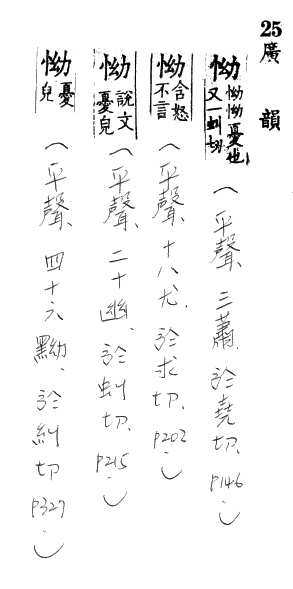 25廣韻
怮怮怮憂也又一虯切(平聲、三蕭、於堯切、P146。)
怮含怒不言(平聲、十八尤、於求切、P202。)
怮說文憂皃(平聲、二十幽、於虯切、P215。)
怮憂皃(平聲、四十六黝、於糾切P327。)